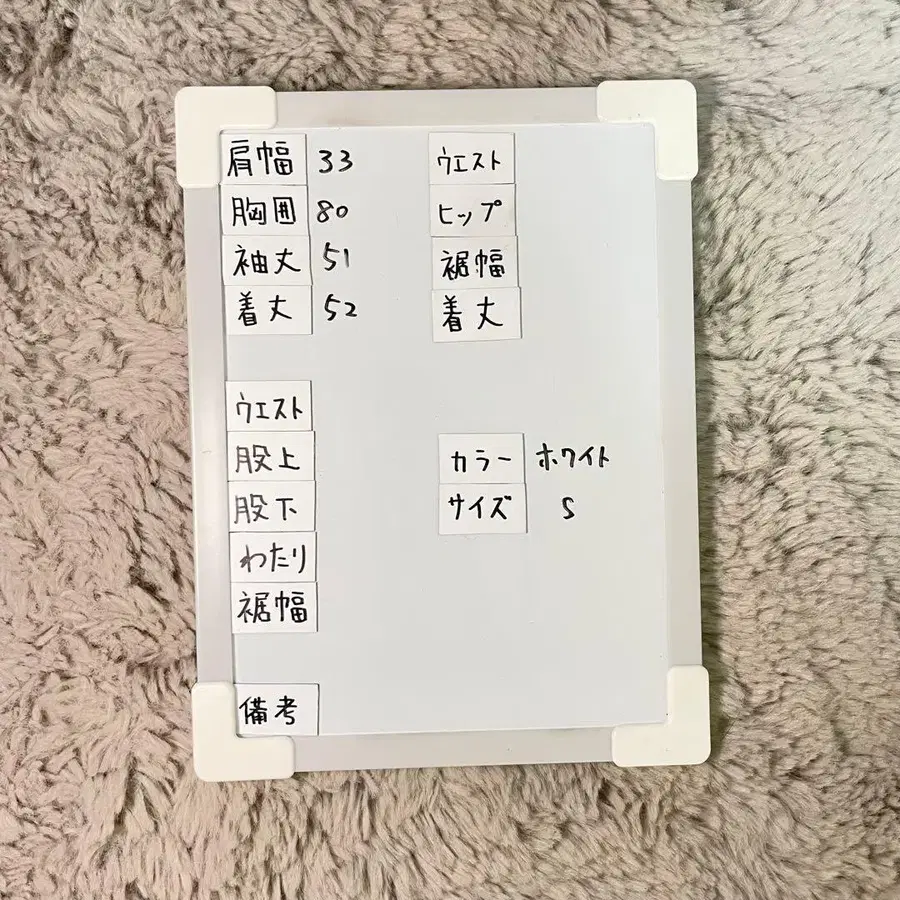 肩幅 33
胸囲 80
袖丈 51
着丈 52
ウエスト
ヒップ
裾幅
着丈
ウエスト
股上
股下
わたり
裾幅
カラー ホワイト
サイズ S
備考